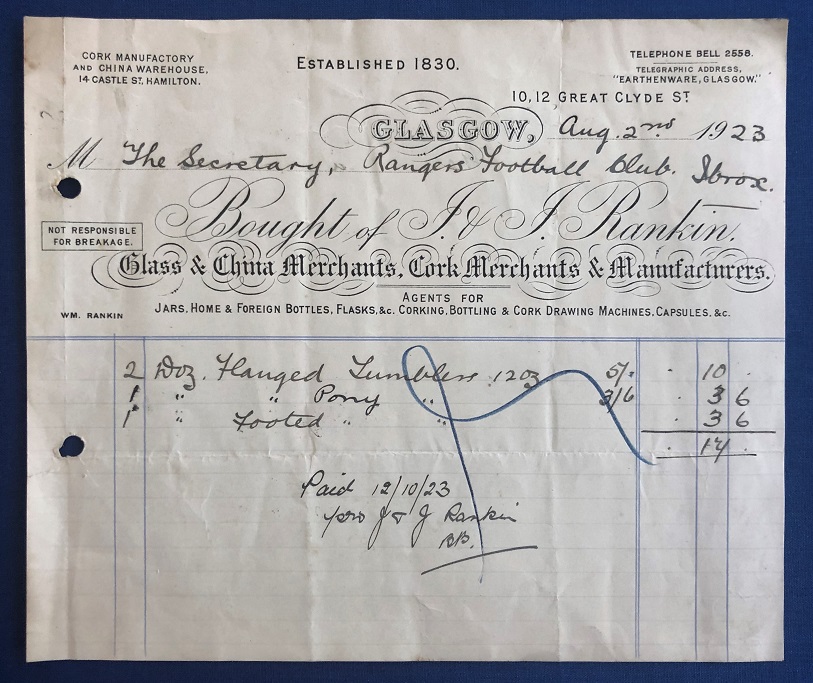 CORK MANUFACTORY
AND CHINA WAREHOUSE,
14 CASTLE ST. HAMILTON.
ESTABLISHED 1830.
TELEPHONE BELL 2558.
TELEGRAPHIC ADDRESS,
"EARTHENWARE, GLASGOW."
10, 12, GREAT CLYDE ST
GLASGOW, Aug. 2nd 1923
M The Secretary, Rangers Football Club. Ibrox.
Bought of J. & J. Rankin.
NOT RESPONSIBLE
FOR BREAKAGE.
Glass & China Merchants, Cork Merchants & Manufacturers.
AGENTS FOR
JARS, HOME & FOREIGN BOTTLES, FLASKS, &c. CORKING, BOTTLING & CORK DRAWING MACHINES, CAPSULES, &c.
WM. RANKIN
2 Doz. Flanged Tumblers 12oz 5/- . 10 .
1 " " Pony " 3/6 . 3 6
1 " Footed " " . 3 6
. 17 .
Paid 12/10/23
pro J & J Rankin
BB.